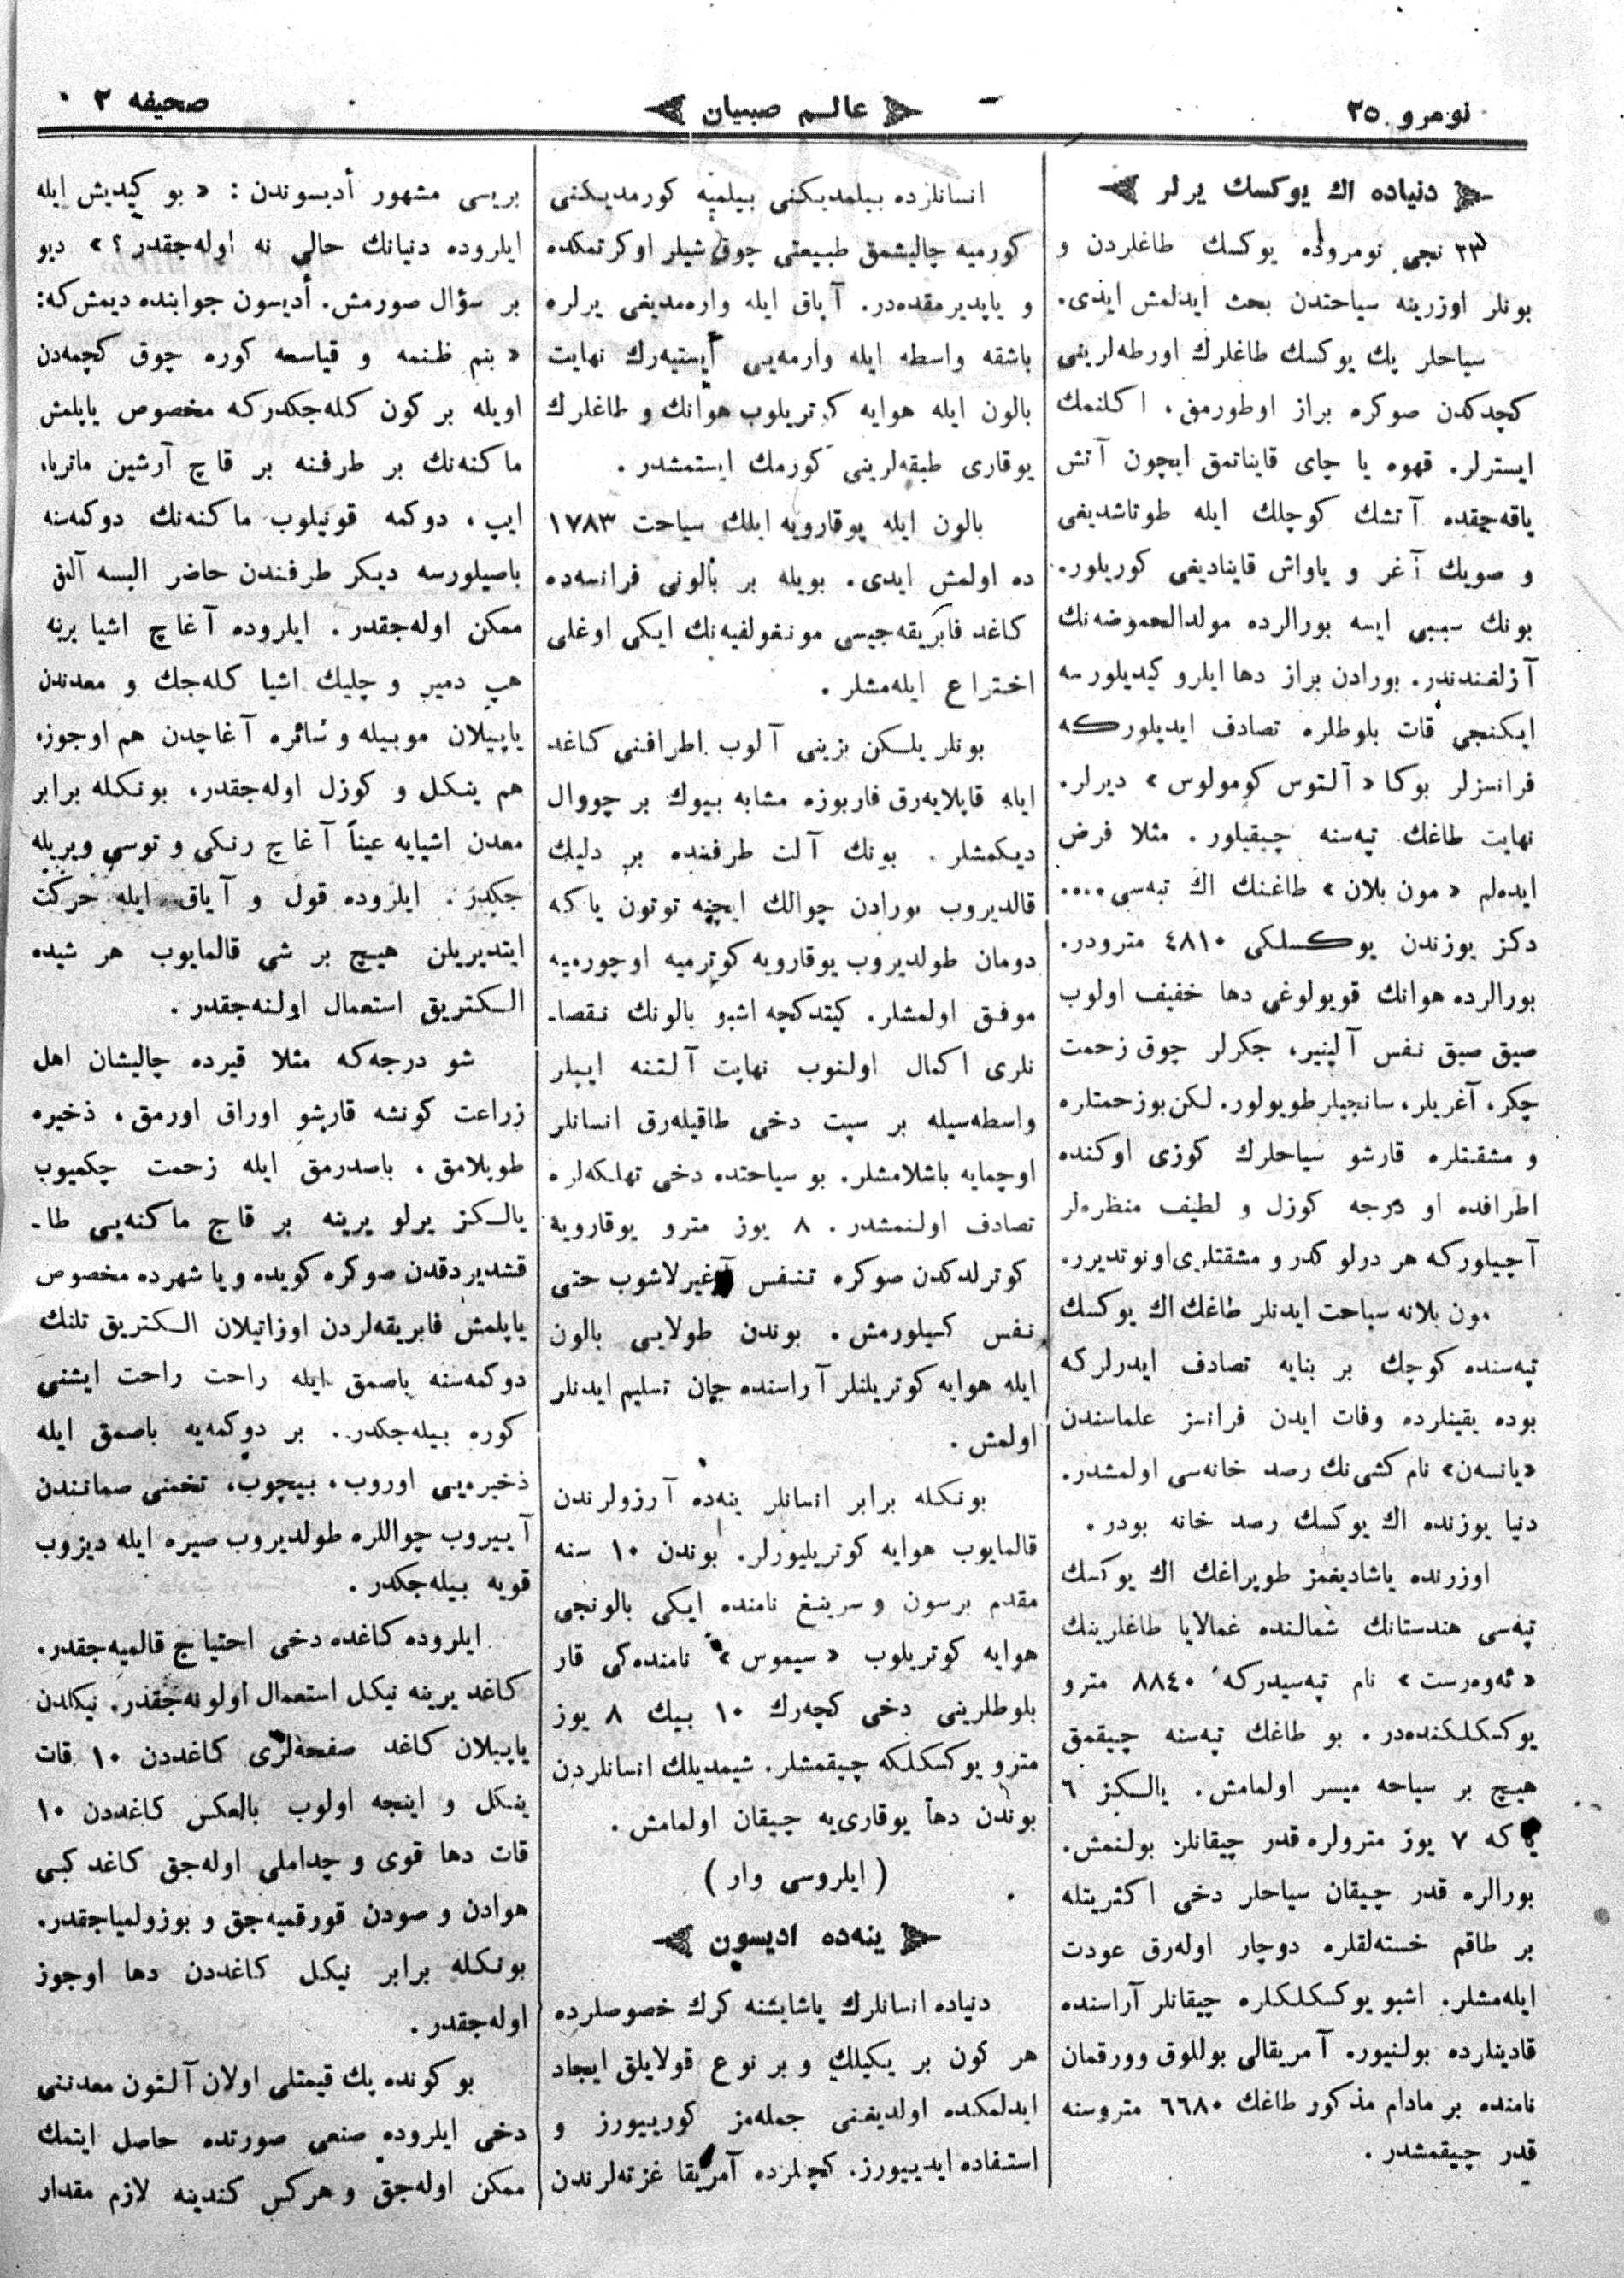 نومرو ٢٥
عالم صبیان
صحیفه ٣
دنیاده اك یوكسك یرلر
٢٣ نجی نومروده یوكسك طاغلردن و
بونلر اوزرینه سیاحتدن بحث ایدلمش ایدی.
سیاحلر پك یوكسك طاغلرك اورطه‌لرینی
كچدكدن صوكره براز اوطورمق، اكلنمك
ایسترلر. قهوه یا چای قایناتمق ایچون آتش
یاقه‌جقده آتشك كوچلك ایله طوتاشدیغی
و صویك آغر و یاواش قاینادیغی كوریلور.
بونك سببی ایسه بورالرده مولدالحموضه‌نك
آزلغندندر. بورادن براز دها ایلرو كیدیلورسه
ایكنجی قات بلوطلره تصادف ایدیلوركه
فرانسزلر بوكا «آلتوس كومولوس» دیرلر.
نهایت طاغك تپه‌سنه چیقیلور. مثلا فرض
ایده‌لم «مون بلان» طاغنك اك تپه‌سی....
دكز یوزندن یوكسلكی ٤٨١٠ مترودر.
بورالرده هوانك قویولوغی دها خفیف اولوب
صیق صیق نفس آلینیر، جكرلر چوق زحمت
چكر، آغریلر، سانجیلر طویولور. لكن بوزحمتلره
و مشقتلره قارشو سیاحلرك كوزی اوكنده
اطرافده او درجه كوزل و لطیف منظره‌لر
آچیلوركه هر درلو كدر و مشقتلری اونوتدیرر.
مون بلانه سیاحت ایدنلر طاغك اك یوكسك
تپه‌سنده كوچك بر بنایه تصادف ایدرلركه
بوده یقینلرده وفات ایدن فرانسز علماسندن
«یانسه‌ن» نام كشی‌نك رصد خانه‌سی اولمشدر.
دنیا یوزنده اك یوكسك رصد خانه بودر.
اوزرنده یاشادیغمز طوپراغك اك یوكسك
تپه‌سی هندستانك شمالنده غمالایا طاغلرینك
«ئه‌وه‌رست» نام تپه‌سیدركه ٨٨٤٠ مترو
یوكسكلكنده‌در. بو طاغك تپه‌سنه چیقمق
هیچ بر سیاحه میسر اولمامش. یالكز ٦
یاكه ٧ یوز مترولره قدر چیقانلر بولنمش.
بورالره قدر چیقان سیاحلر دخی اكثریتله
بر طاقم خسته‌لقلره دوچار اوله‌رق عودت
ایله‌مشلر. اشبو یوكسكلكلره چیقانلر آراسنده
قادینلرده بولنیور. آمریقالی بوللوق وورقمان
نامنده بر مادام مذكور طاغك ٦٦٨٠ متروسنه
قدر چیقمشدر.
انسانلرده بیلمدیكنی بیلمیه كورمدیكنی
كورمیه چالیشمق طبیعتی چوق شیلر اوكرتمكده
و یاپدیرمقده‌در. آیاق ایله واره‌مدیغی یرلره
باشقه واسطه ایله وارمه‌یی ایستیه‌رك نهایت
بالون ایله هوایه كوتریلوب هوانك و طاغلرك
یوقاری طبقه‌لرینی كورمك ایستمشدر.
بالون ایله یوقارویه ایلك سیاحت ١٧٨٣
ده اولمش ایدی. بویله بر بالونی فرانسه‌ده
كاغد فابریقه‌جیسی مونغولفیه‌نك ایكی اوغلی
اختراع ایله‌مشلر.
بونلر یلكن بزینی آلوب اطرافنی كاغد
ایله قاپلایه‌رق قاربوزه مشابه بیوك بر چووال
دیكمشلر. بونك آلت طرفنده بر دلیك
قالدیروب بورادن چوالك ایچنه توتون یاكه
دومان طولدیروب یوقارویه كوترمیه اوچورمیه
موفق اولمشلر. كیتدكچه اشبو بالونك نقصا-
نلری اكمال اولنوب نهایت آلتنه ایپلر
واسطه‌سیله بر سپت دخی طاقیله‌رق انسانلر
اوچمایه باشلامشلر. بو سیاحتده دخی تهلكه‌لره
تصادف اولنمشدر. ٨ یوز مترو یوقارویه
كوترلدكدن صوكره تنفس آغیرلاشوب حتی
نفس كسیلورمش. بوندن طولایی بالون
ایله هوایه كوتریلنلر آراسنده جان تسلیم ایدنلر
اولمش.
بونكله برابر انسانلر ینه‌ده آرزولرندن
قالمایوب هوایه كوتریلیورلر. بوندن ١٠ سنه
مقدم برسون و سرینغ نامنده ایكی بالونجی
هوایه كوتریلوب «سیموس» نامنده‌كی قار
بلوطلرینی دخی كچه‌رك ١٠ بیك ٨ یوز
مترو یوكسكلكه چیقمشلر. شیمدیلك انسانلردن
بوندن دها یوقاری‌یه چیقان اولمامش.
(ایلروسی وار)
ینه‌ده ادیسون
دنیاده انسانلرك یاشایشنه كرك خصوصلرده
هر كون بر یكیلك و بر نوع قولایلق ایجاد
ایدلمكده اولدیغنی جمله‌مز كورییورز و
استفاده ایدییورز. كچلرده آمریقا غزته‌لرندن
بریسی مشهور أدیسوندن: «بو كیدیش ایله
ایلروده دنیانك حالی نه اوله‌جقدر؟» دیو
بر سؤال صورمش. أدیسون جوابنده دیمش‌كه:
«بنم ظنمه و قیاسمه كوره چوق كچمه‌دن
اویله بر كون كله‌جكدركه مخصوص یاپلمش
ماكنه‌نك بر طرفنه بر قاچ آرشین ماتریا،
ایپ، دوكمه قونیلوب ماكنه‌نك دوكمه‌سنه
باصیلورسه دیكر طرفندن حاضر البسه آلق
ممكن اوله‌جقدر. ایلروده آغاچ اشیا یرینه
هپ دمیر و چلیك اشیا كله‌جك و معدندن
یاپیلان موبیله و سائره آغاچدن هم اوجوز،
هم ینكل و كوزل اوله‌جقدر. بونكله برابر
معدن اشیایه عیناً آغاچ رنكی و توسی ویریله
جكدر. ایلروده قول و آیاق ایله حركت
ایتدیریلن هیچ بر شی قالمایوب هر شیده
الكتریق استعمال اولنه‌جقدر.
شو درجه‌كه مثلا قیرده چالیشان اهل
زراعت كونشه قارشو اوراق اورمق، ذخیره
طوپلامق، باصدرمق ایله زحمت چكمیوب
یالكز یرلو یرینه بر قاچ ماكنه‌یی طا-
قشدیردقدن صوكره كویده و یا شهرده مخصوص
یاپلمش فابریقه‌لردن اوزاتیلان الكتریق تلنك
دوكمه‌سنه باصمق ایله راحت راحت ایشنی
كوره بیله‌جكدر. بر دوكمه‌یه باصمق ایله
ذخیره‌یی اوروب، بیچوب، تخمنی صماندن
آییروب چواللره طولدیروب صیره ایله دیزوب
قویه بیله‌جكدر.
ایلروده كاغده دخی احتیاج قالمیه‌جقدر.
كاغد یرینه نیكل استعمال اولونه‌جقدر. نیكلدن
یاپیلان كاغد صفحه‌لری كاغددن ١٠ قات
ینكل و اینجه اولوب بالعكس كاغددن ١٠
قات دها قوی و چداملی اوله‌جق كاغد كبی
هوادن و صودن قورقمیه‌جق و بوزولمیاجقدر.
بونكله برابر نیكل كاغددن دها اوجوز
اوله‌جقدر.
بو كونده پك قیمتلی اولان آلتون معدننی
دخی ایلروده صنعی صورتده حاصل ایتمك
ممكن اوله‌جق و هركس كندینه لازم مقدار